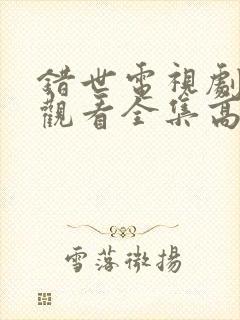 錯世電視劇
觀看全集高
雪落微揚